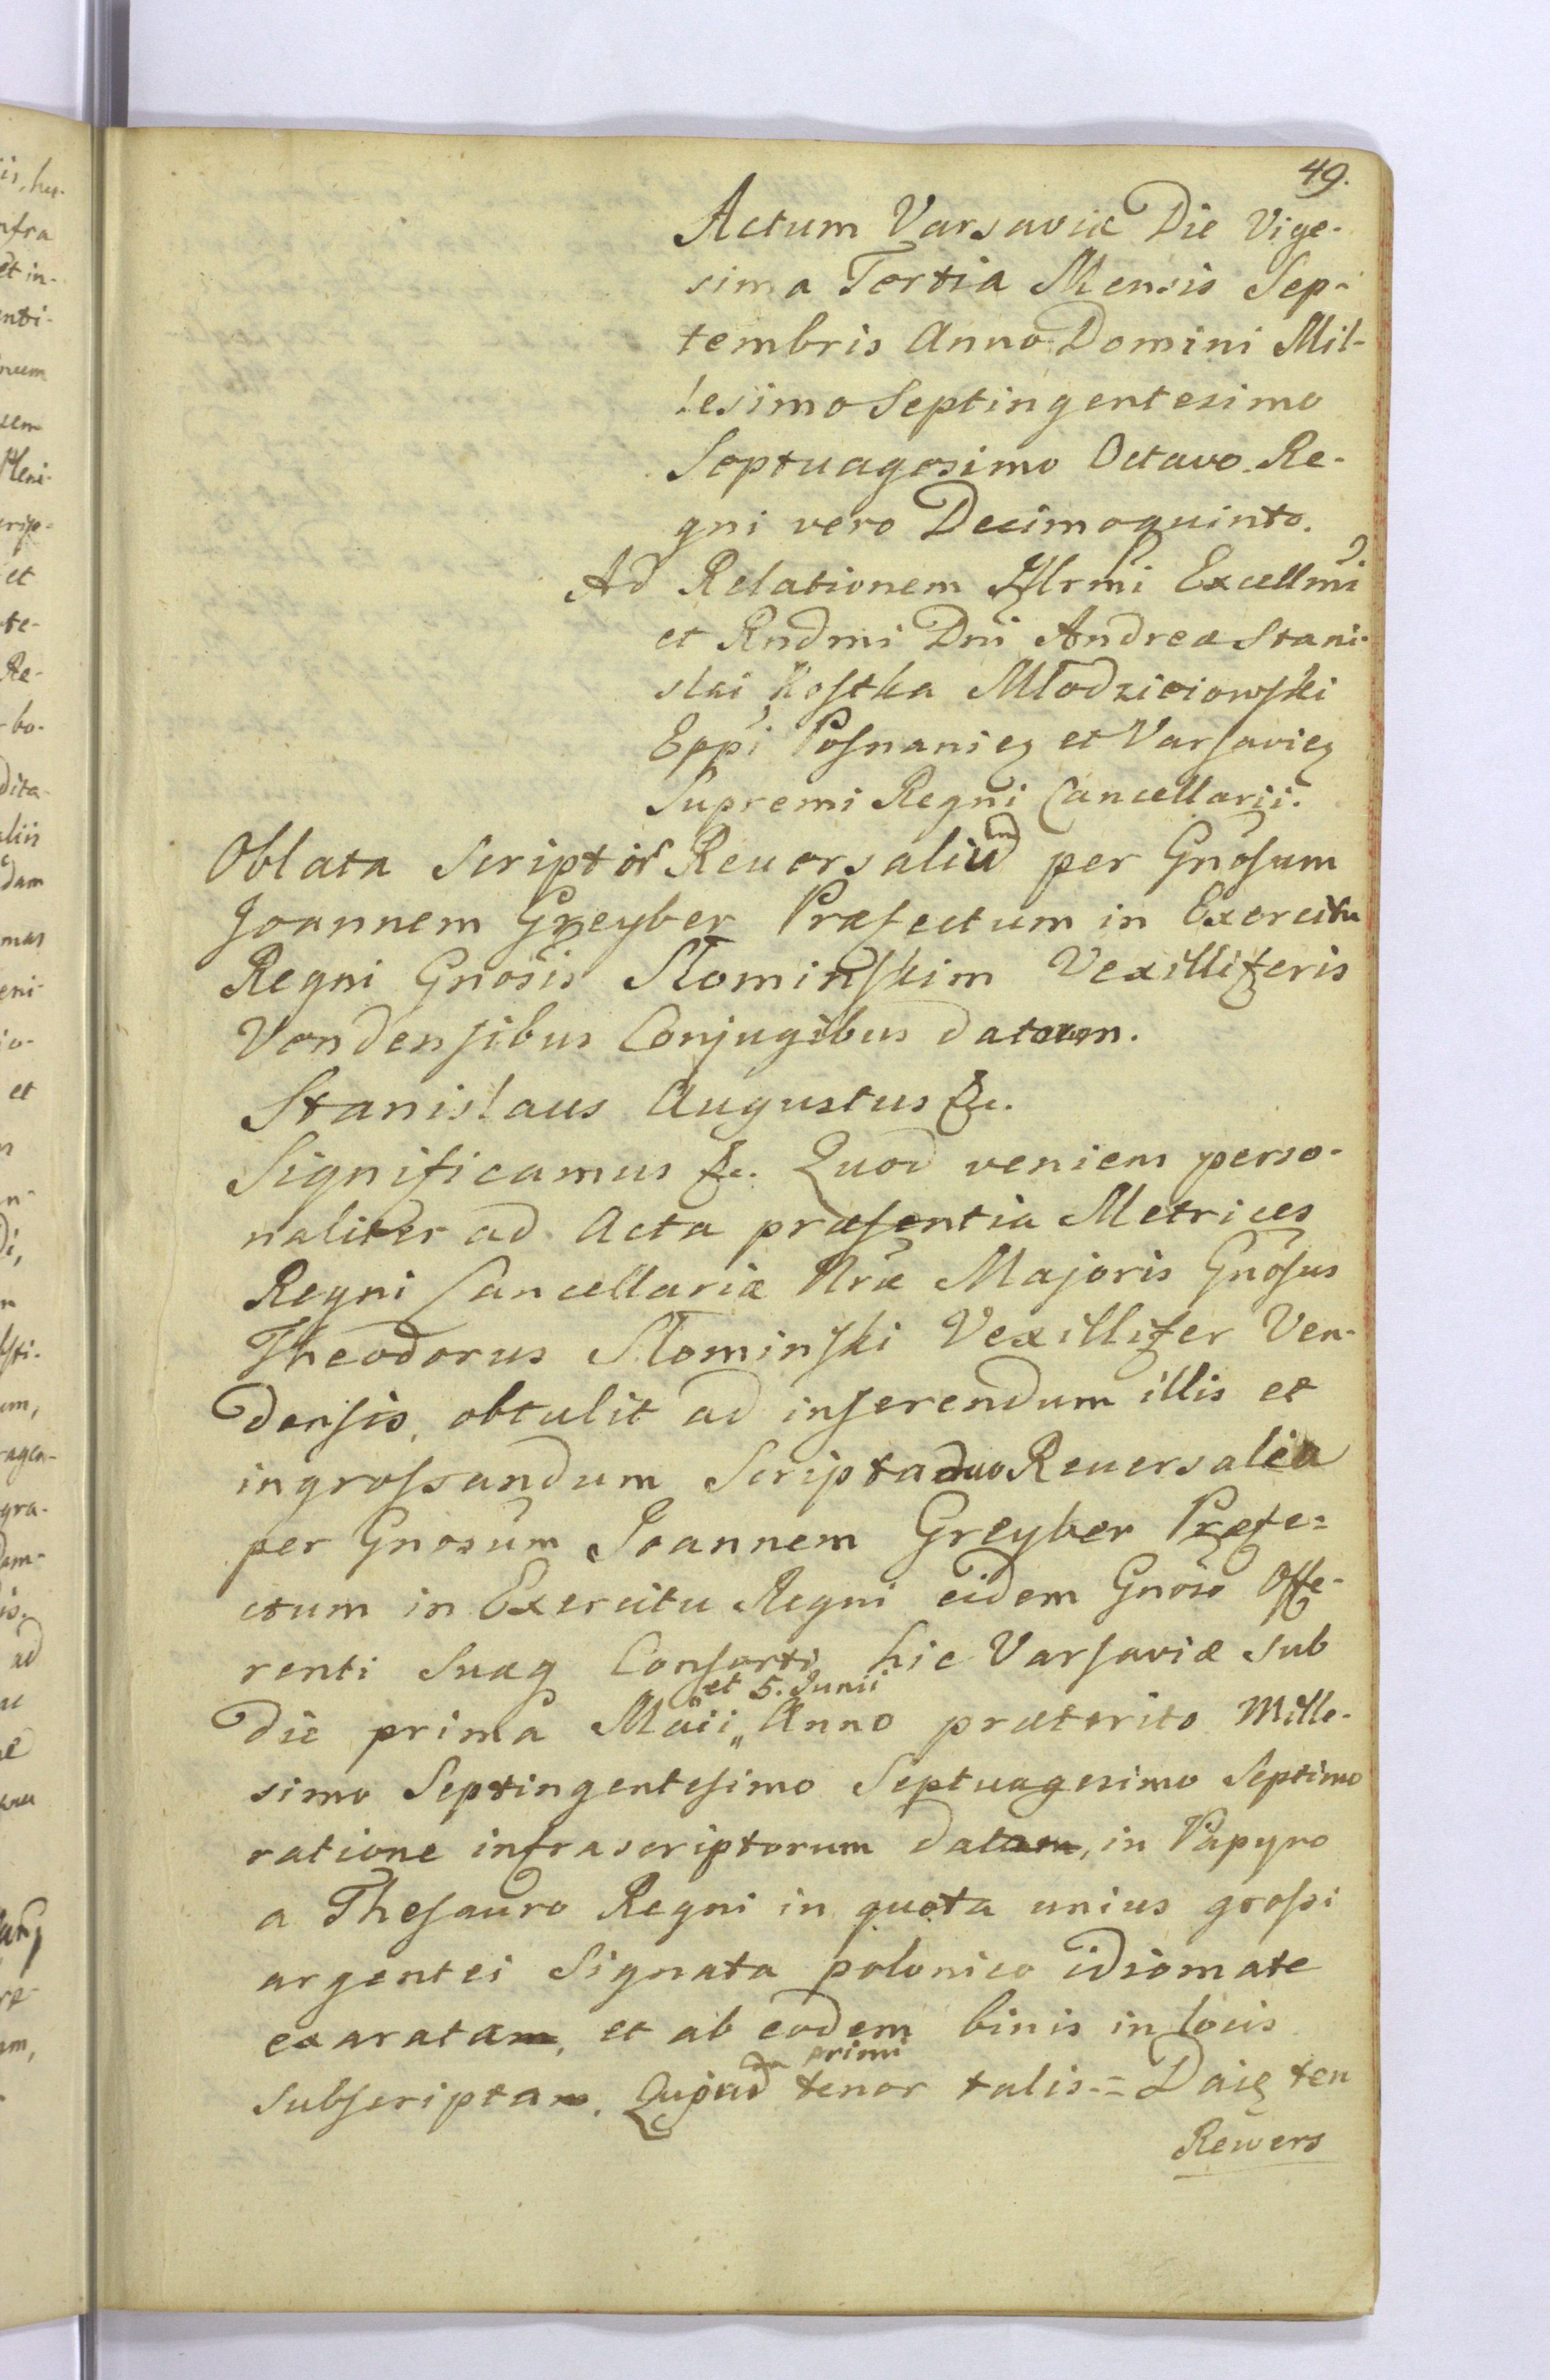 49.
Actum Varsaviæ Die Vige-
sima Tertia Mensis Sep-
tembris Anno Domini Mil-
lesimo Septingentesimo
Septuagesimo Octavo. Re-
gni vero Decimoquinto.
Ad Relationem Illrmi Excellmi
et Rndmi Dni Andreæ Stani-
slai Kostka Młodzieiowski
Eppi Posnanien et Varsavien
Supremi Regni Cancellarii.
Oblata Scriptor Reversalium per Gnosum
Joannem Greyber Præfectum in Exercitu
Regni Gnosis Słominskim Vexilliferis
Vendensibus Conjugibus datorum.
Stanislaus Augustus &c.
Significamus &c. Quod veniens perso-
naliter ad Acta præsentia Metrices
Regni Cancellariæ Nræ Majoris Gnosus
Theodorus Słominski Vexillifer Ven-
densis, obtulit ad inserendum illis et
ingrossandum Scripta duo Reversalia
per Gnosum Joannem Greyber Præfe=
ctum in Exercitu Regni eidem Gnoso Offe-
renti Suæq Consorti hic Varsaviæ sub
et 5. Junii
die prima Maii „ Anno præterito Mille-
simo Septingentesimo Septuagesimo Septimo
ratione infrascriptorum data, in Papyro
a Thesauro Regni in quota unius grossi
argentei Signata polonico idiomate
exarata, et ab eodem binis in locis
primi
subscripta. tenor talis = Daię ten
Rewers
is, hu-
nfra
et in-
enti-
num
uem
Pleni-
crip-
et
te-
Re-
bo-
dita-
aliis
dam
mas
eni-
io-
et
n-
di,
um,
ragea-
gra-
dam-
is.
ad